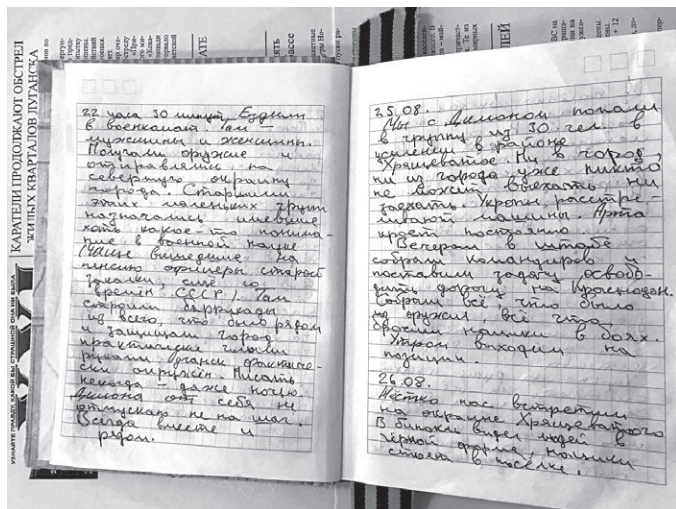 КАРАТЕЛИ ПРОДОЛЖАЮТ ОБСТРЕЛ
ЖИЛЫХ КВАРТАЛОВ ЛУГАНСКА
УЗНАЙТЕ ПРАВДУ, КАКОЙ БЫ СТРАШНОЙ ОНА НИ БЫЛА
22 часа 30 минут. Ездили
в военкомат. Там –
мужчины и женщины.
Получали оружие и
отправлялись на
северную окраину
города. Старшими
этих маленьких групп
назначались имевшие
хоть какое-то понима-
ние в военной науке
(чаще вышедшие на
пенсию офицеры старой
закалки, ещё со
времён СССР). Там
строили баррикады
из всего, что было рядом
и защищали город
практически голыми
руками. Луганск фактиче-
ски окружён. Писать
некогда – даже ночью.
Димона от себя не
отпускаю не на шаг.
Всегда вместе и
рядом.
25.08.
Мы с Димоном попали
в группу из 30 чел. в
усилении в районе
Хрящеватое. Ни в город,
ни из города уже никто
не может выехать ни
заехать. Укропы расстре-
ливают машины. Арта
кроет постоянно.
Вечером в штабе
собрали командиров и
поставили задачу освобо-
дить дорогу на Краснодон.
Собрали всё что было
из оружия всё что
бросили нацики в боях.
Утром выходим на
позиции.
26.08.
Жёстко нас встретили
на окраине Хрящеватого
В бинокли видел людей в
чёрной форме, нацики
стоят в посёлке.